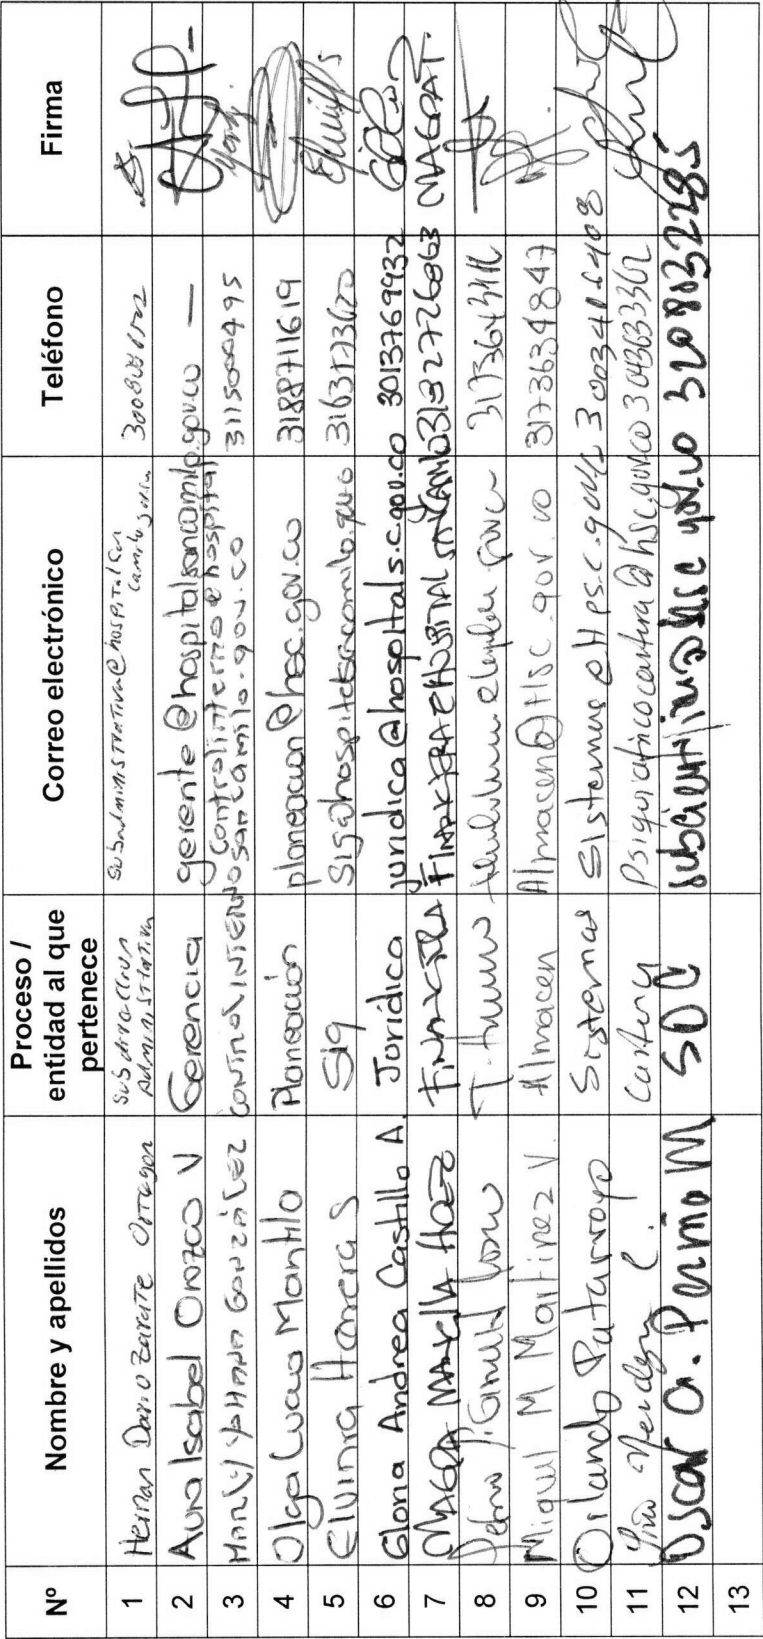 Nº Nombre y apellidos Proceso / entidad al que pertenece Correo electrónico Teléfono Firma
1 Hernan Dario Zarate Ortegon Subdireccion Administrativa subadministrativa@hospitalsan camilo.gov.co
2 Aura Isabel Orozco V Gerencia gerente@hospitalsancamilo.gov.co —
3 Marly Yohana González Control Interno Controlinterno@hospital sancamilo.gov.co 3115000495
4 Olga Lucao Mantilla Planeación planeacion@hsc.gov.co 3188711619
5 Elvinia Herrera S Sig Sig@hospitalsancamilo.gov.co 3163173620
6 Gloria Andrea Castillo A. Jurídica juridica@hospitals.c.gov.co 3013769932
7 Magda Financiera Financiera@hospitalsancamilo 3132726863
8 Pedro T. Humano 3173643416
9 Miguel M Martinez V. Almacen Almacen@Hsc.gov.co 3173634847
10 Orlando Patarroyo Sistemas Sistemas@Hpsc.gov.c 3003406408
11 Cartera Psiquiatricocartera@hsc.gov.co 3043633362
12 Oscar A. Permo M SDC subcientifica@hsc.gov.co 3208032285
13